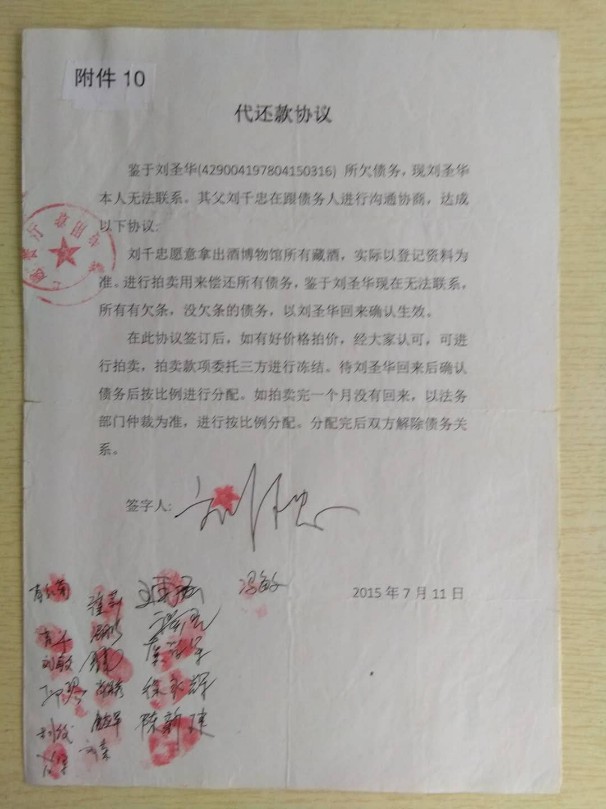 附件 10
代还款协议
鉴于刘圣华(429004197804150316) 所欠债务，现刘圣华
本人无法联系。其父刘千忠在跟债务人进行沟通协商，达成
以下协议:
刘千忠愿意拿出酒博物馆所有藏酒，实际以登记资料为
准。进行拍卖用来偿还所有债务，鉴于刘圣华现在无法联系，
所有有欠条，没欠条的债务，以刘圣华回来确认生效。
在此协议签订后，如有好价格拍价，经大家认可，可进
行拍卖，拍卖款项委托三方进行冻结。待刘圣华回来后确认
债务后按比例进行分配。如拍卖完一个月没有回来，以法务
部门仲裁为准，进行按比例分配。分配完后双方解除债务关
系。
签字人:
冯敏
2015 年 7 月 11 日
刘敏
陈新建